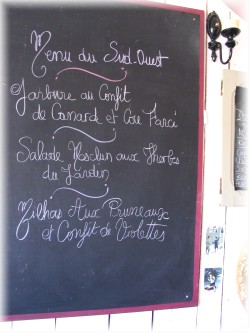 Menu du Sud-Ouest
Garbure au Confit
de Canard et Cou Farci
Salade Mesclun aux Herbes
du Jardin
Millas Aux Pruneaux
et Confit de Violettes